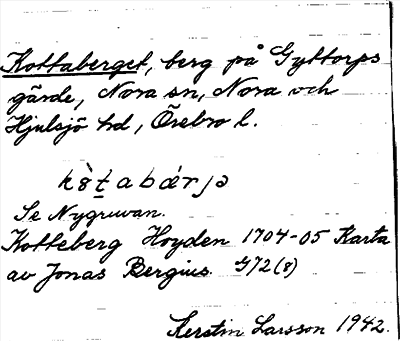 Kottaberget, berg på Gyttorps
gärde, Nora sn, Nora och
Hjulsjö hd, Örebro l.
kò̤ṯabǽrjə
Se Nygruvan.
Kotteberg Hoyden 1704-05 Karta
av Jonas Bergius. G72(8)
Kerstin Larsson 1942.